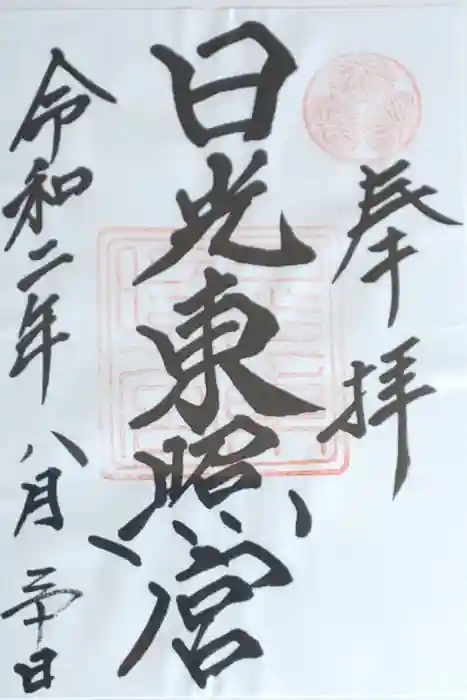 奉拝
日光東照宮
令和二年八月三十日